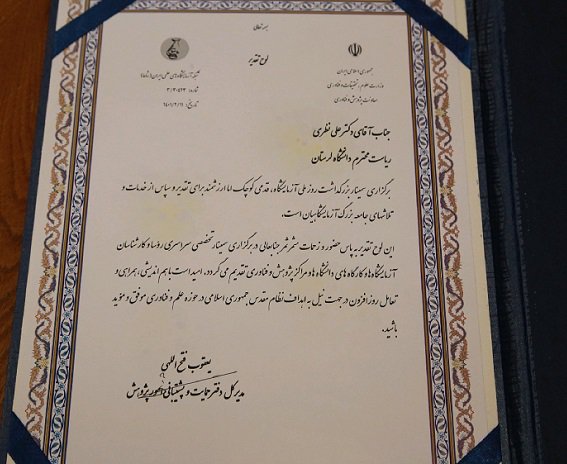 بسمه تعالی
جمهوری اسلامی ایران
وزارت علوم، تحقیقات و فناوری
معاونت پژوهش و فناوری
لوح تقدیر
شبکه آزمایشگاه‌های علمی ایران (شاعا)
شماره: ۳/۳۰۴۲۳
تاریخ: ۱۴۰۱/۲/۱۹
جناب آقای دکتر علی نظری
ریاست محترم دانشگاه لرستان
برگزاری سمینار بزرگداشت روز ملی آزمایشگاه، قدمی کوچک اما ارزشمند برای تقدیر و سپاس از خدمات و
تلاشهای جامعه بزرگ آزمایشگاهیان است.
این لوح تقدیر به پاس حضور و زحمات ثمربخش جنابعالی در برگزاری سمینار تخصصی سراسری رؤسا و کارشناسان
آزمایشگاه‌ها و کارگاه‌های دانشگاه‌ها و مراکز پژوهش و فناوری تقدیم می‌گردد، امید است با هم‌اندیشی، همراهی و
تعامل روزافزون در جهت نیل به اهداف نظام مقدس جمهوری اسلامی در حوزه علم و فناوری موفق و مؤید
باشید.
یعقوب فتح اللهی
مدیر کل دفتر حمایت و پشتیبانی امور پژوهش